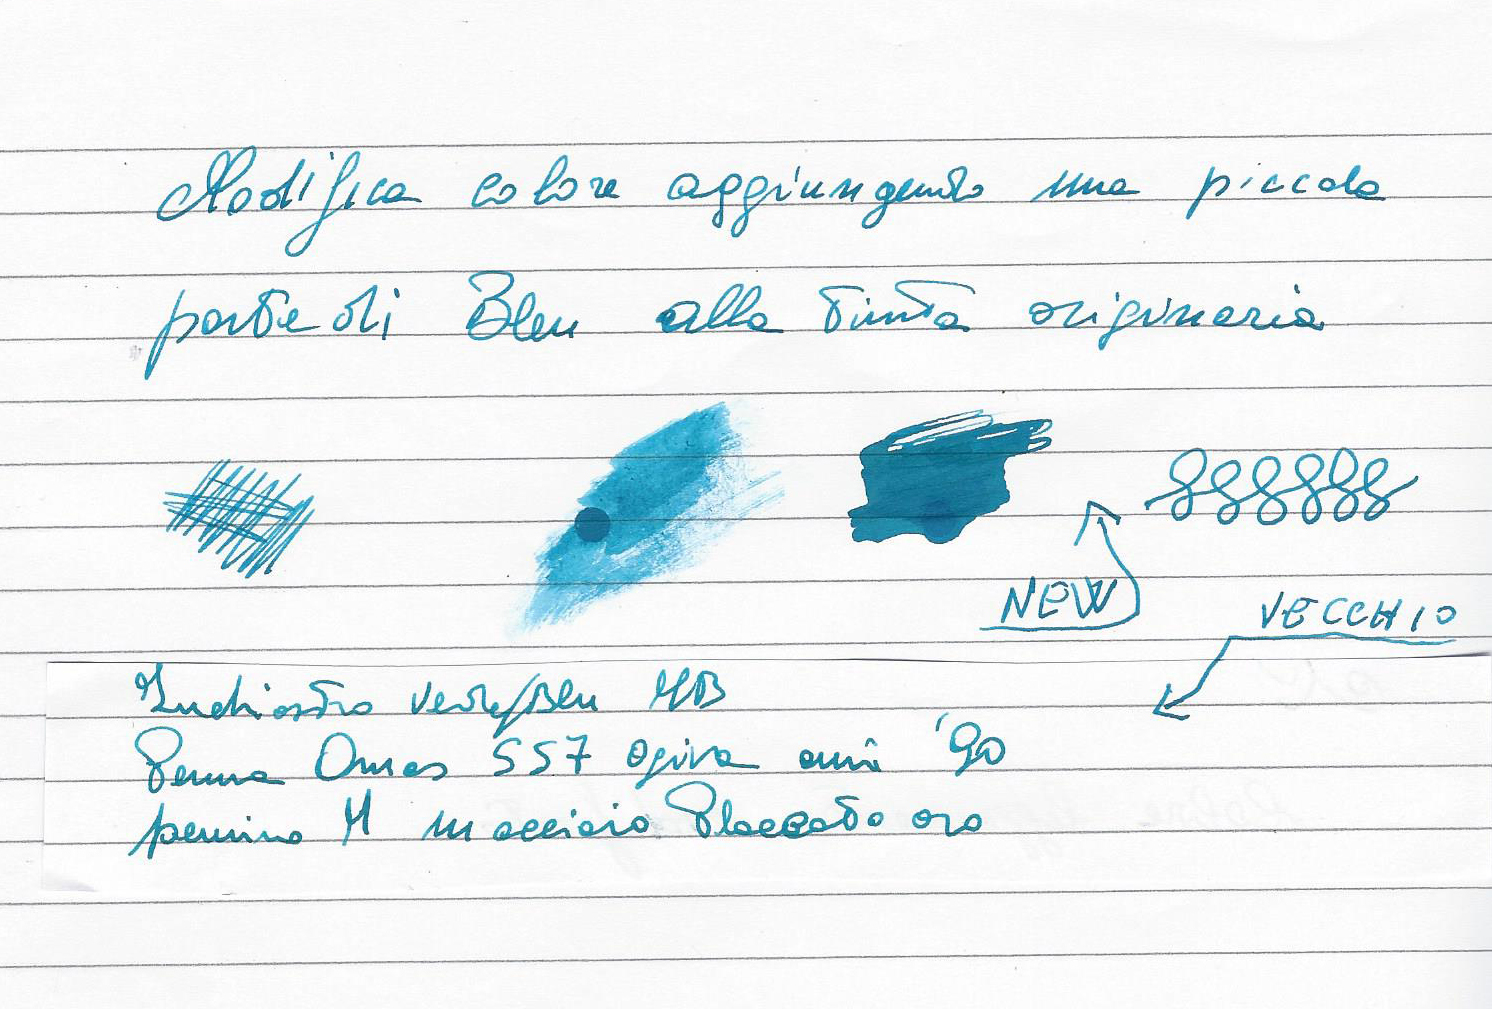 Modifica colore aggiungendo una piccola
parte di Bleu alla tinta originaria
NEW
VECCHIO
Inchiostro Verde/Bleu MB
Penna Omas 557 ogiva anni '90
pennino M in acciaio Placcato oro